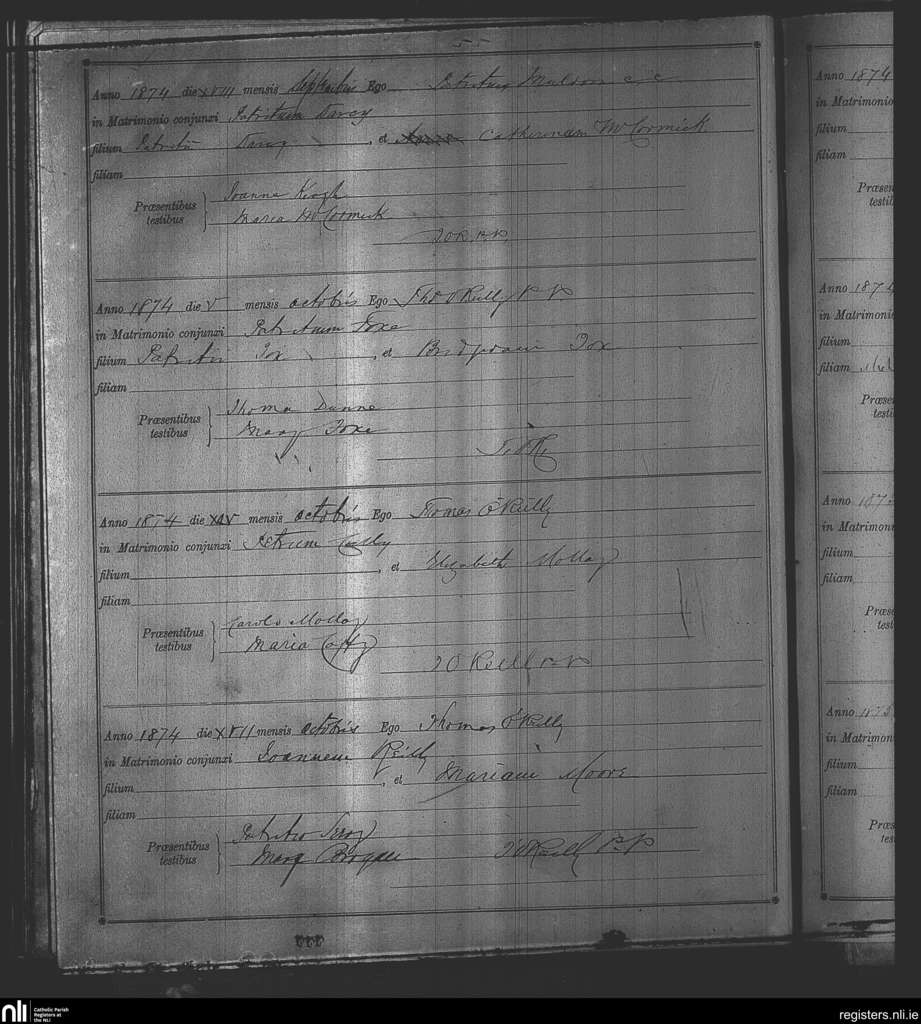 55
Anno 1874 die XVIII mensis Septembris Ego Patritius Muldoon c c
in Matrimonio conjunxi Patritium Darcy
filium Patritii Darcy, et Catherinam McCormick
filiam
Præsentibus testibus
Joanne Keogh
Maria McCormick
T O R. P. P.
Anno 1874 die V mensis octobris Ego Tho O'Reilly P P
in Matrimonio conjunxi Patritium Foxe
filium Patritii Fox, et Bridgidam Fox
filiam
Præsentibus testibus
Thoma Dunne
Mary Foxe
T. O'R.
Anno 1874 die XIV mensis octobris Ego Thomas O'Reilly
in Matrimonio conjunxi Petrum
filium, et Elizabeth Molloy
filiam
Præsentibus testibus
Carolo Molloy
Maria
T O Reilly P P
Anno 1874 die XVII mensis octobris Ego Thomas O'Reilly
in Matrimonio conjunxi Joannem Reilly
filium, et Mariam Moore
filiam
Præsentibus testibus
Patritio
Mary Brogan
T O'Reilly P P
Anno 1874
in Matrimonio
filium
filiam
Anno 1874
filium
filiam
Anno
filium
filiam
Anno
filium
filiam
nli
Catholic Parish
Registers at
the NLI
registers.nli.ie